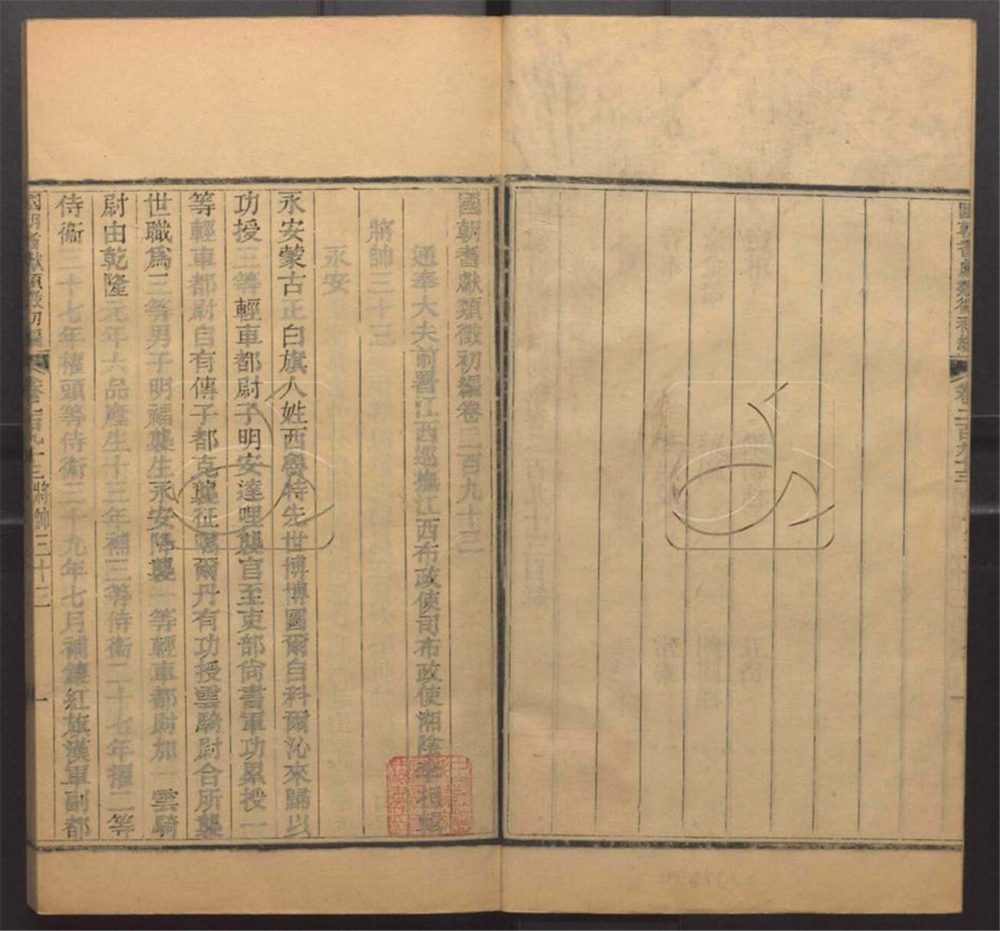 國朝耆獻類徵初編 卷二百九十三
國朝耆獻類徵初編卷二百九十三
通奉大夫前署江西巡撫江西布政使司布政使湘陰李桓輯
將帥三十三
永安
永安蒙古正白旗人姓西魯特先世博博圖爾自科爾沁來歸以
功授三等輕車都尉子明安達哩襲官至吏部尚書軍功累授一
等輕車都尉自有傳子都克襲征噶爾丹有功授雲騎尉合所襲
世職為三等男子明福襲生永安降襲一等輕車都尉加一雲騎
尉由乾隆元年六品廕生十三年補三等侍衞二十七年擢二等
侍衞三十七年擢頭等侍衞三十九年七月補鑲紅旗漢軍副都
國朝耆獻類徵初編 卷二百九十三 將帥三十三 一